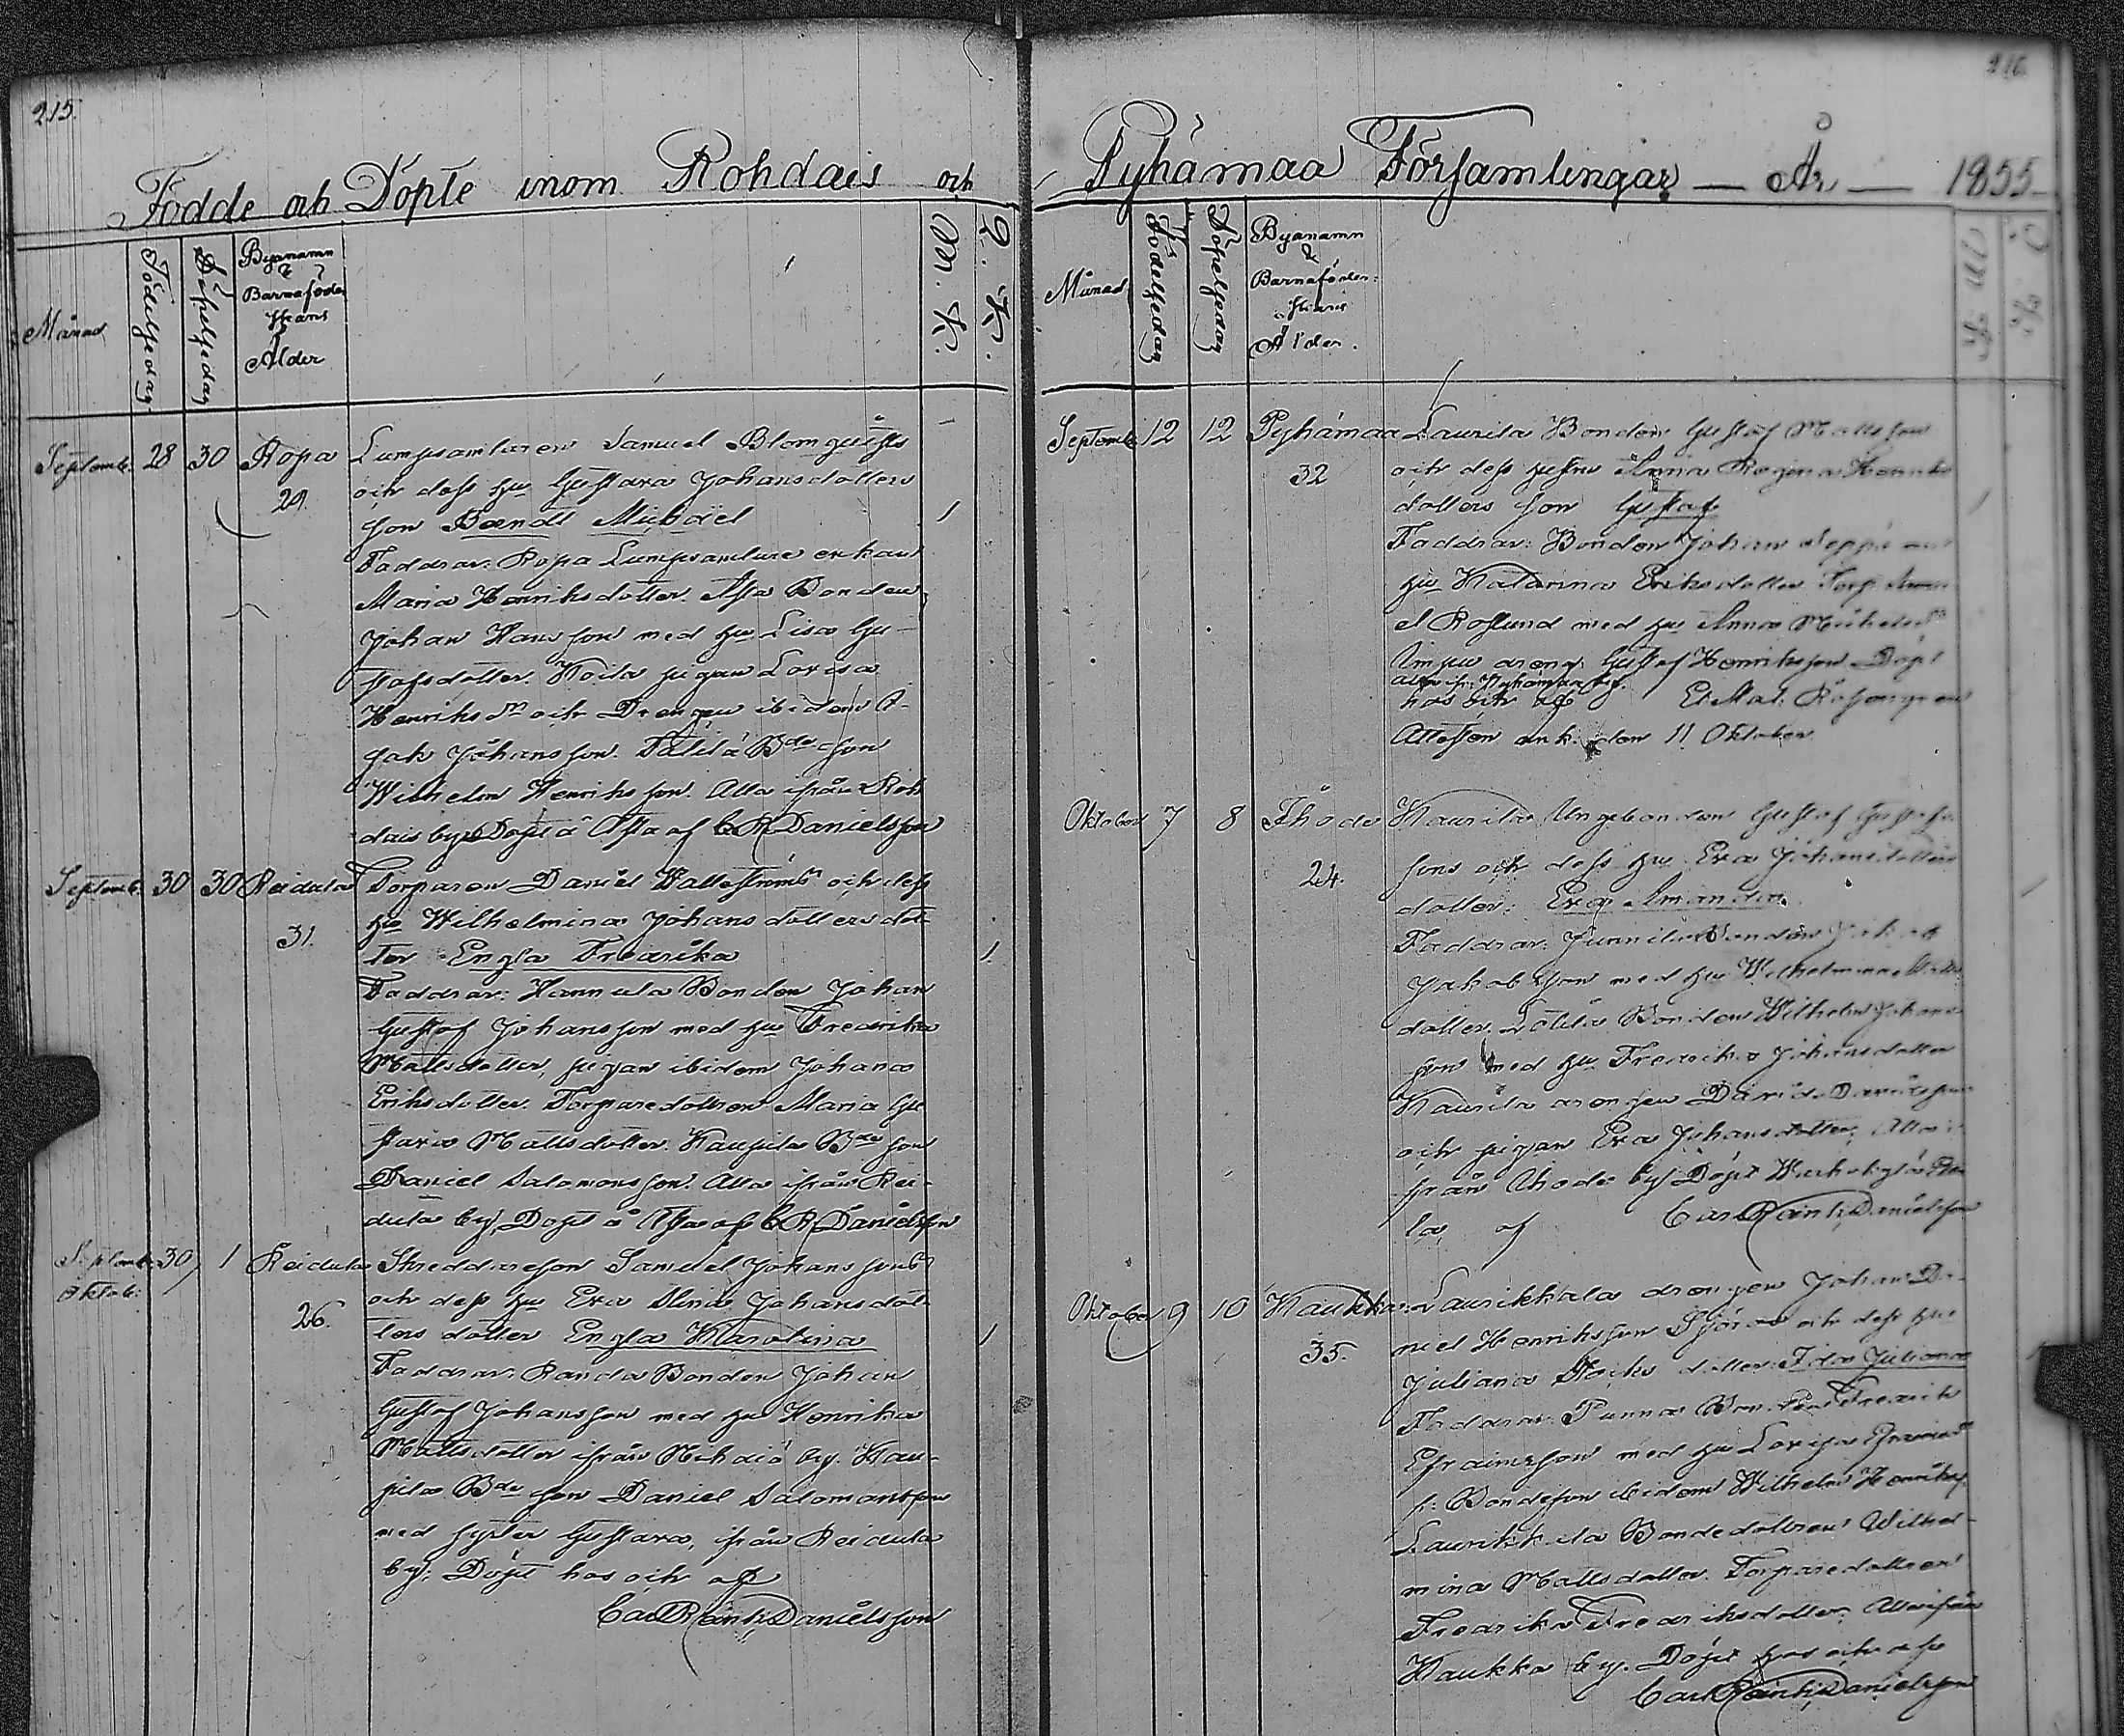 215.
Födde och Döpte inom Rohdais och
Månad
Födelsedag
Döpelsedag
Byanamn
&
Barnaföder
skans
Ålder
M. K.
Q. K.
Septemb. 28 30 Ropa Lumpsamlaren Samuel Blomquists
29. och dess hu Gustava Johansdotters
son Berndt Michaël 1
Faddrar: Ropa Lumpsamlare enkan
Maria Henriksdotter. Asta Bonden
Johan Hansson med hu Lisa Gu-
stafsdotter. Koila pigan Lovisa
Henriksdr och Drengen ibidem I-
sak Johansson. Talila Bde son
Wilhelm Henriksson. Alla ifrån Roh
dais by. Döpt å Asta af C R Danielsson
Septemb. 30 30 Reidula Torparen Daniel Wallströms och dess
31. hu Wilhelmina Johansdotters dot
ter Engla Fredrika 1.
Faddrar: Hannula Bonden Johan
Gustaf Johansson med hu Fredrika
Mattsdotter, pigan ibidem Johana
Eriksdotter. Torparedottren Maria Gu
stava Mattsdotter. Kaupila Bde son
Daniel Salomonsson. Alla ifrån Rei-
dula by, Döpt å Asta af C R Danielsson
Septemb. 30 1 Reidula Skreddareson Samuel Johanssons
Oktob: och dess hu Eva Stina Johansdot-
26. ters dotter Engla Karolina 1
Faddrar: Randa Bonden Johan
Gustaf Johansson med hu Henrika
Mattsdotter ifrån Nihdiö by. Kau-
pila Bde son Daniel Salomonsson
med syster Gustava, ifrån Reidula
by; Döpt hos och af
Carl R Danielsson
216.
Pyhämaa Församlingar — År — 1855
Månad
Födelsedag
Döpelsedag
Byanamn
&
Barnaföder:
skans
Ålder.
M K
Q K
Septemb 12 12 Pyhämaa Laurila Bonden Gustaf Mattsson
32 och dess hustru Anna Regina Henriks
dotters son Gustaf
Faddrar: Bonden Johan Seppä med
hu Katarina Eriksdotter Torp.
el Roslund med hu Anna Michelsdr
dreng Gustaf Henriksson Döpt
Alla ifr. Pyhämaa by.
hos och af
Attesten ank. den 11 Oktober
Oktober 7 8 Ihode Kaurila Ungbonden Gustaf Gustafs
24. sons och dess hu Eva Johansdotters
dotter: Eva Amanda.
Faddrar: Junnila Bonden Jakob
Jakobsson med hu Wilhelmina
dotter. Lälila Bonden Wilhelm Johans
son med hu Fredrika Johansdotter
Kaurila drengen David Davidsson
och pigan Eva Johansdotter, Alla i
från Ihode by. Döpt
la, af Carl R Danielsson
Oktober 9 10 Kaukka Laurikkala drengen Johan Da-
35. niel Henriksson och dess hu
Juliana dotter: Ida Juliana
Faddrar: Punna Bonden Fredrik
Efraimsson med hu Lovisa Efraims
Bondeson ibidem Wilhelm Henriks
Laurikkala Bondedottren Wilhel-
mina Mattsdotter. Torparedottren
Fredrika Fredriksdotter. Alla ifrån
Kaukka by. Döpt hos och af
Carl R Danielsson